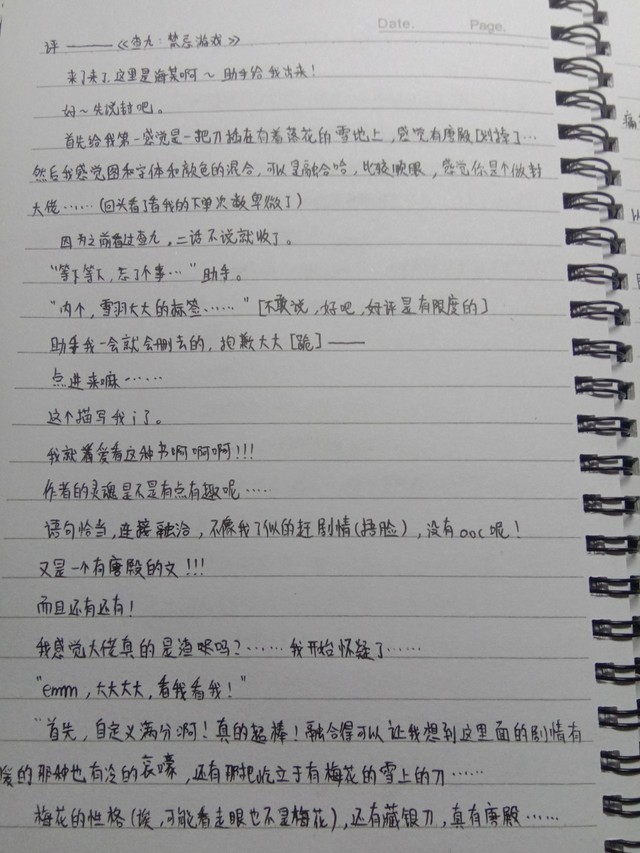 Date.
Page.
评 ——《查九：禁忌游戏》
来了来了，这里是海棠啊～助手给我出来！
好～先说封吧。
首先给我第一感觉是一把刀插在有着落花的雪地上，感觉有唐殿[划掉]…
然后我感觉图和字体和颜色的混合，可以是融合哈，比较顺眼，感觉你是个做封
大佬……(回头看了看我的下单次数卑微了)
因为之前看过查九，二话不说就收了。
“等下等下，怎了个事…”助手。
“内个，雪羽大大的标签……”[不敢说，好吧，好评是有限度的]
助手我一会就会删去的，抱歉大大[跪]——
点进来嘛……
这个描写我i了。
我就着爱看这种书啊啊啊啊!!!
作者的灵魂是不是有点有趣呢……
语句恰当，连接融洽，不像我了似的赶剧情(捂脸)，没有ooc呢！
又是一个有唐殿的文!!!
而且还有还有！
我感觉大佬真的是渣呢吗？……我开始怀疑了……
“emm，大大大大，看我看我！”
“首先，自定义满分啊！真的超棒！融合得可以让我想到这里面的剧情有
的那种也有冷的哀嚎，还有那把屹立于有梅花的雪上的刀……
梅花的性格(诶，可能看走眼也不是梅花)，还有藏银刀，真有唐殿……